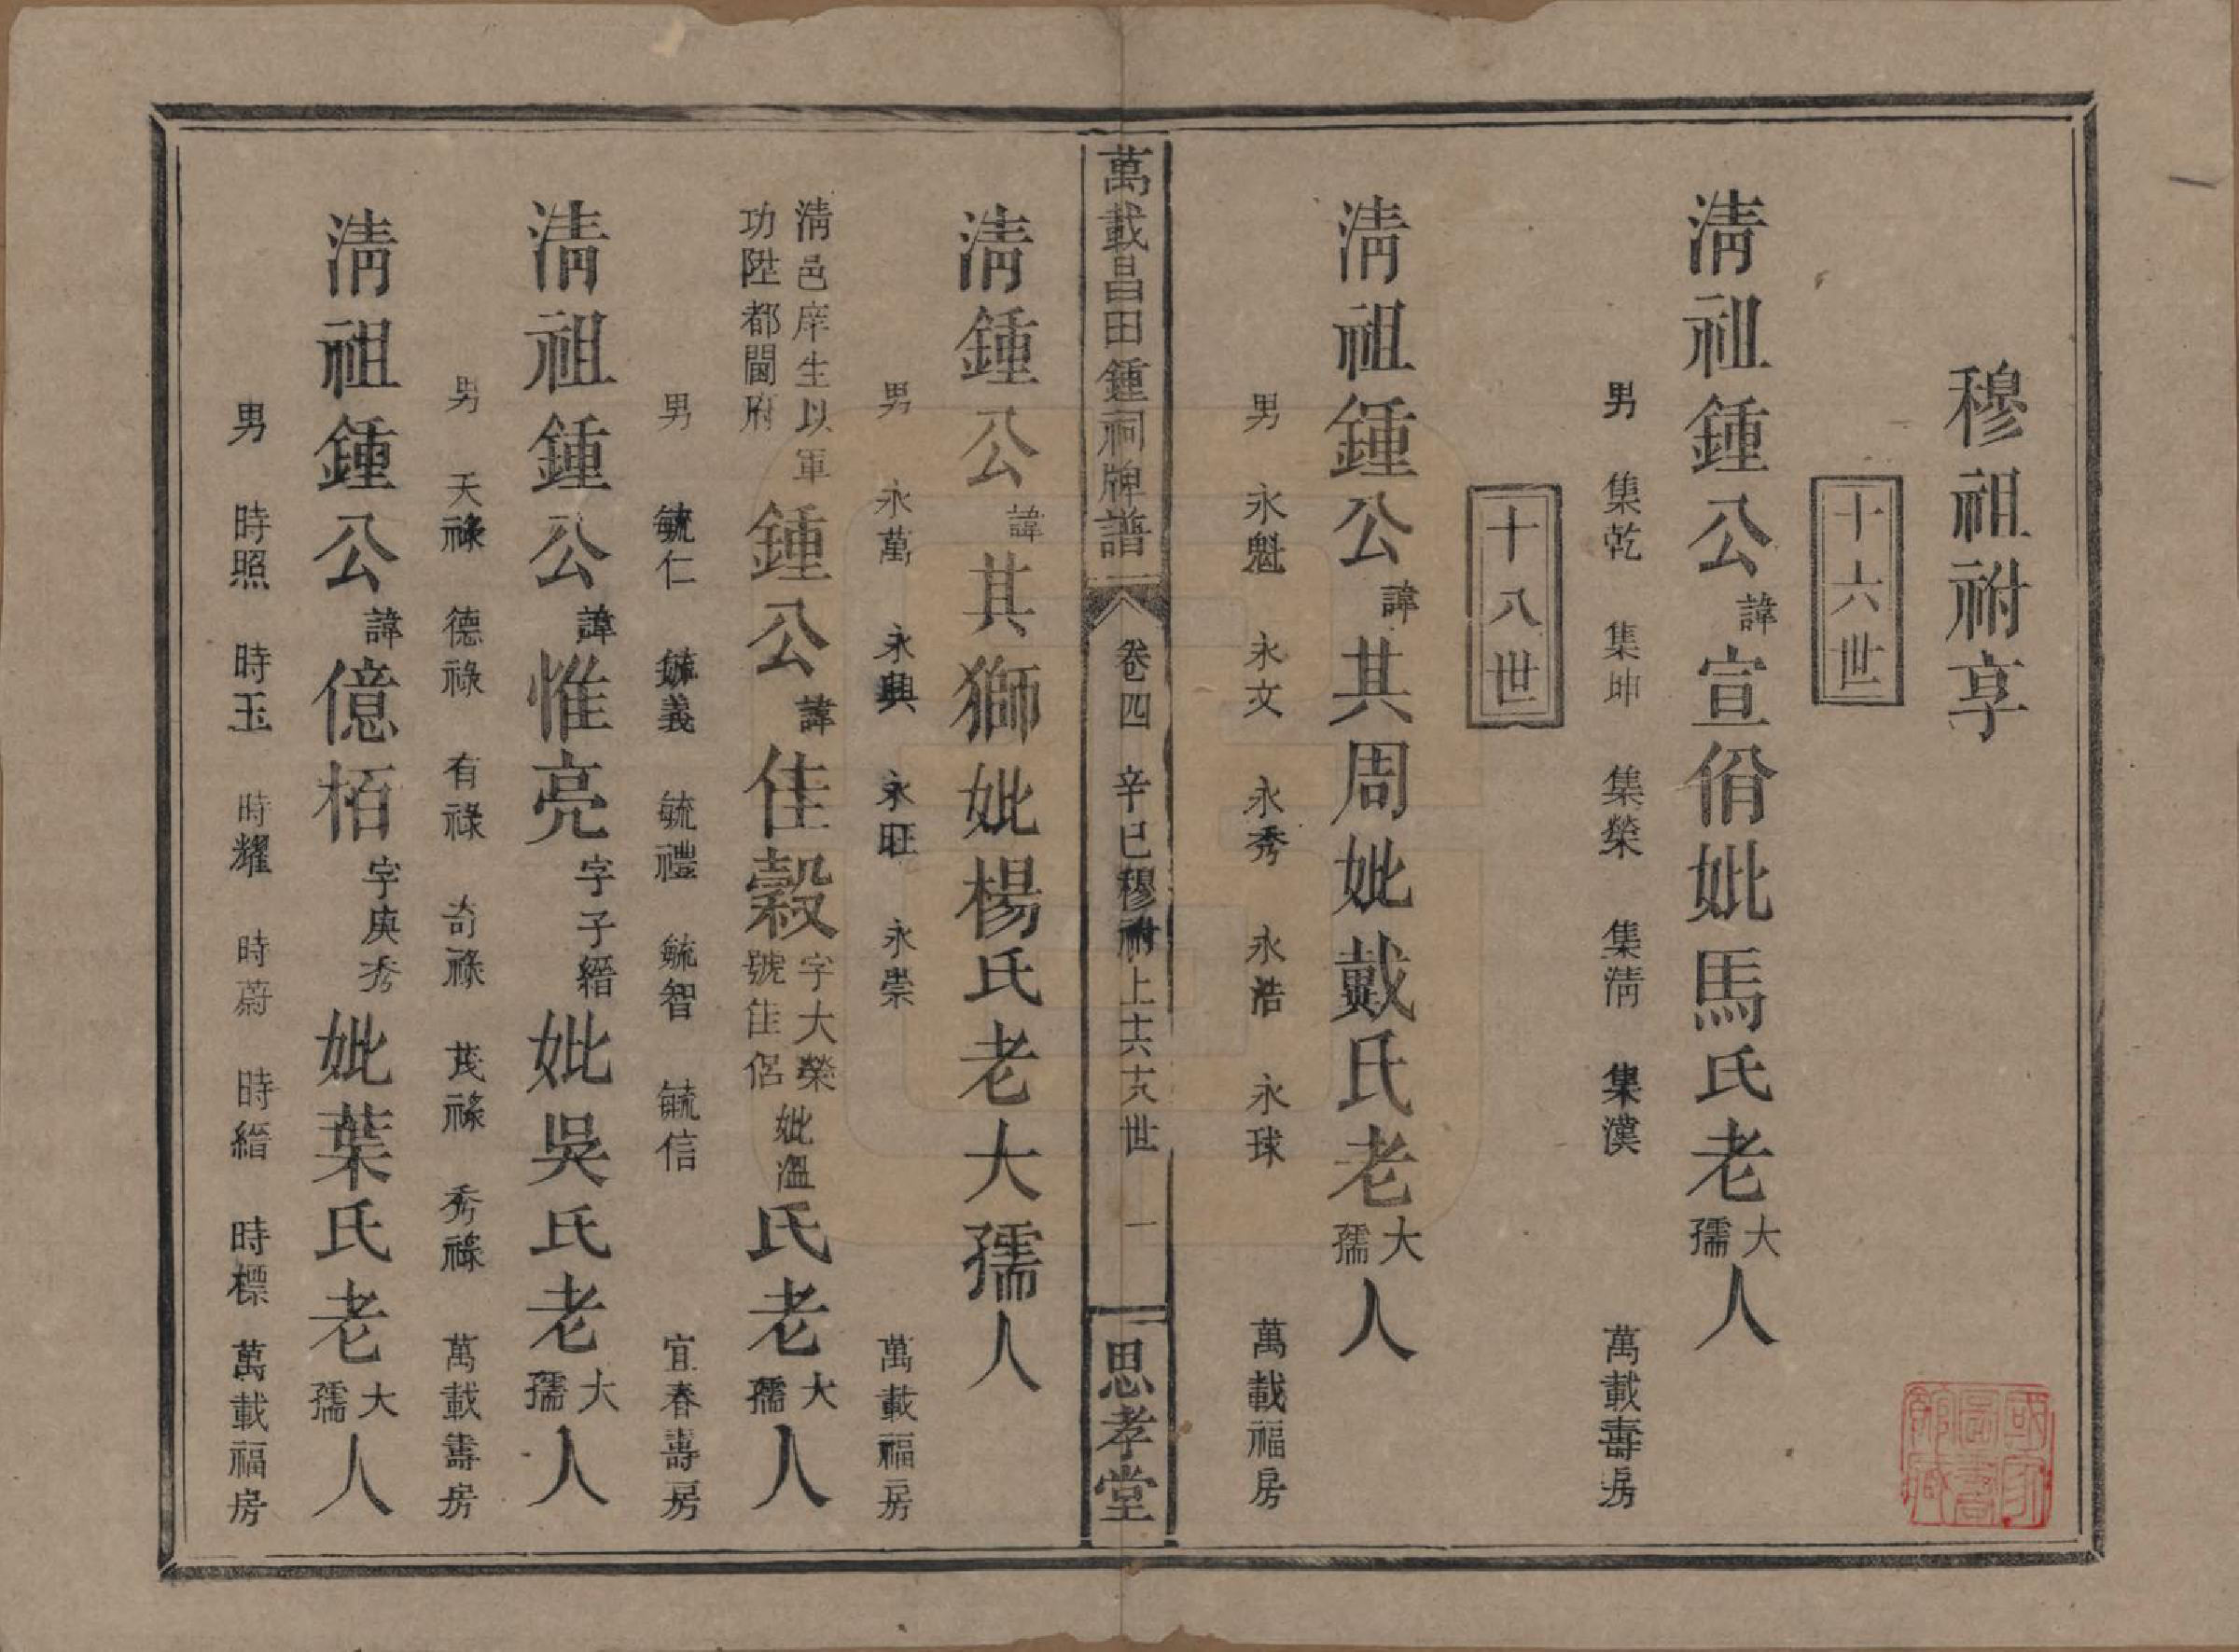 穆祖祔享
十六世
清祖鍾公諱宣俏妣馬氏老大孺人
男 集乾 集坤 集榮 集清 集漢 萬載壽房
十八世
清祖鍾公諱其周妣戴氏老大孺人
男 永魁 永文 永秀 永浩 永球 萬載福房
萬載昌田鍾祠牌譜 卷四 辛巳穆祔上十六十八世 一 思孝堂
清鍾公諱其獅妣楊氏老大孺人
男 永萬 永興 永旺 永崇 萬載福房
清邑庠生以軍功陞都閫府鍾公諱佳穀字大榮號佳侶妣溫氏老大孺人
男 毓仁 毓義 毓禮 毓智 毓信 宜春壽房
清祖鍾公諱惟亮字子縉妣吳氏老大孺人
男 天祿 德祿 有祿 奇祿 茂祿 秀祿 萬載壽房
清祖鍾公諱億栢字庚秀妣葉氏老大孺人
男 時照 時玉 時耀 時蔚 時縉 時標 萬載福房
國家圖書館藏